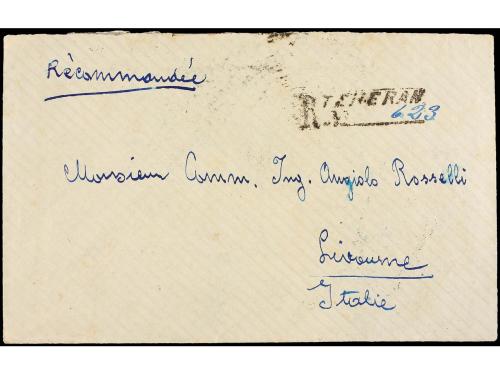 Récommandée
TEHERAN
R. No. 623
Monsieur Comm. Ing. Angiolo Rosselli
Livourne
Italie